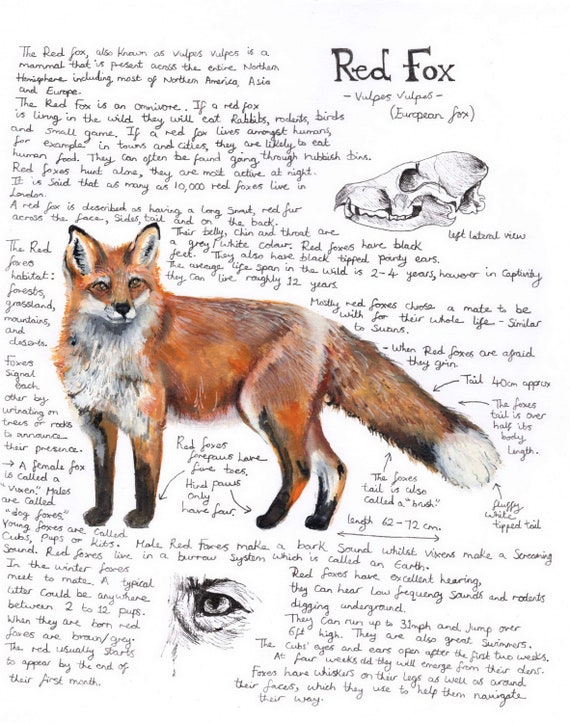 The Red Fox, also known as vulpes vulpes is a
mammal that is present across the entire Northern
Hemisphere including most of Northern America, Asia
and Europe.
The Red Fox is an omnivore. If a red fox
is living in the wild they will eat Rabbits, rodents, birds
and small game. If a red fox lives amongst humans,
for example in towns and cities, they are likely to eat
human food. They can often be found going through rubbish bins.
Red foxes hunt alone, they are most active at night.
It is said that as many as 10,000 red foxes live in
London.
A red fox is described as having a long snout, red fur
across the face, sides, tail and on the back.
Their belly, chin and throat are
a grey/white colour. Red foxes have black
feet. They also have black tipped pointy ears.
The average life span in the wild is 2-4 years, however in captivity
they can live roughly 12 years.
Red Fox
- Vulpes Vulpes -
(European fox)
left lateral view
The Red
foxes
habitat:
forests,
grassland,
mountains,
and
deserts.
Foxes
Signal
each
other by
urinating on
trees or rocks
to announce
their presence.
→ A female fox
is called a
"vixen". Males
are called
"dog foxes."
Young foxes are called
Cubs, Pups or Kits. Male Red Foxes make a bark Sound whilst vixens make a Screaming
Sound. Red foxes live in a burrow System which is called an Earth.
Mostly red foxes choose a mate to be
with for their whole life - Similar
to Swans.
- When Red foxes are afraid
they grin
Tail 40cm approx
The foxes
tail is over
half its
body
length.
Red foxes
forepaws have
five toes.
Hind paws
Only
have four.
The foxes
tail is also
Called a "brush"
fluffy
white
tipped tail
length 62-72 cm.
In the winter foxes
meet to mate. A typical
litter could be anywhere
between 2 to 12 pups.
When they are born red
foxes are brown/grey.
The red usually starts
to appear by the end of
their first month.
Red foxes have excellent hearing,
they can hear low frequency sounds and rodents
digging underground.
They can run up to 31mph and jump over
6ft high. They are also great Swimmers.
The Cubs' eyes and ears open after the first two weeks.
At four weeks did they will emerge from their dens.
Foxes have whiskers on their legs as well as around
their faces, which they use to help them navigate
their way.